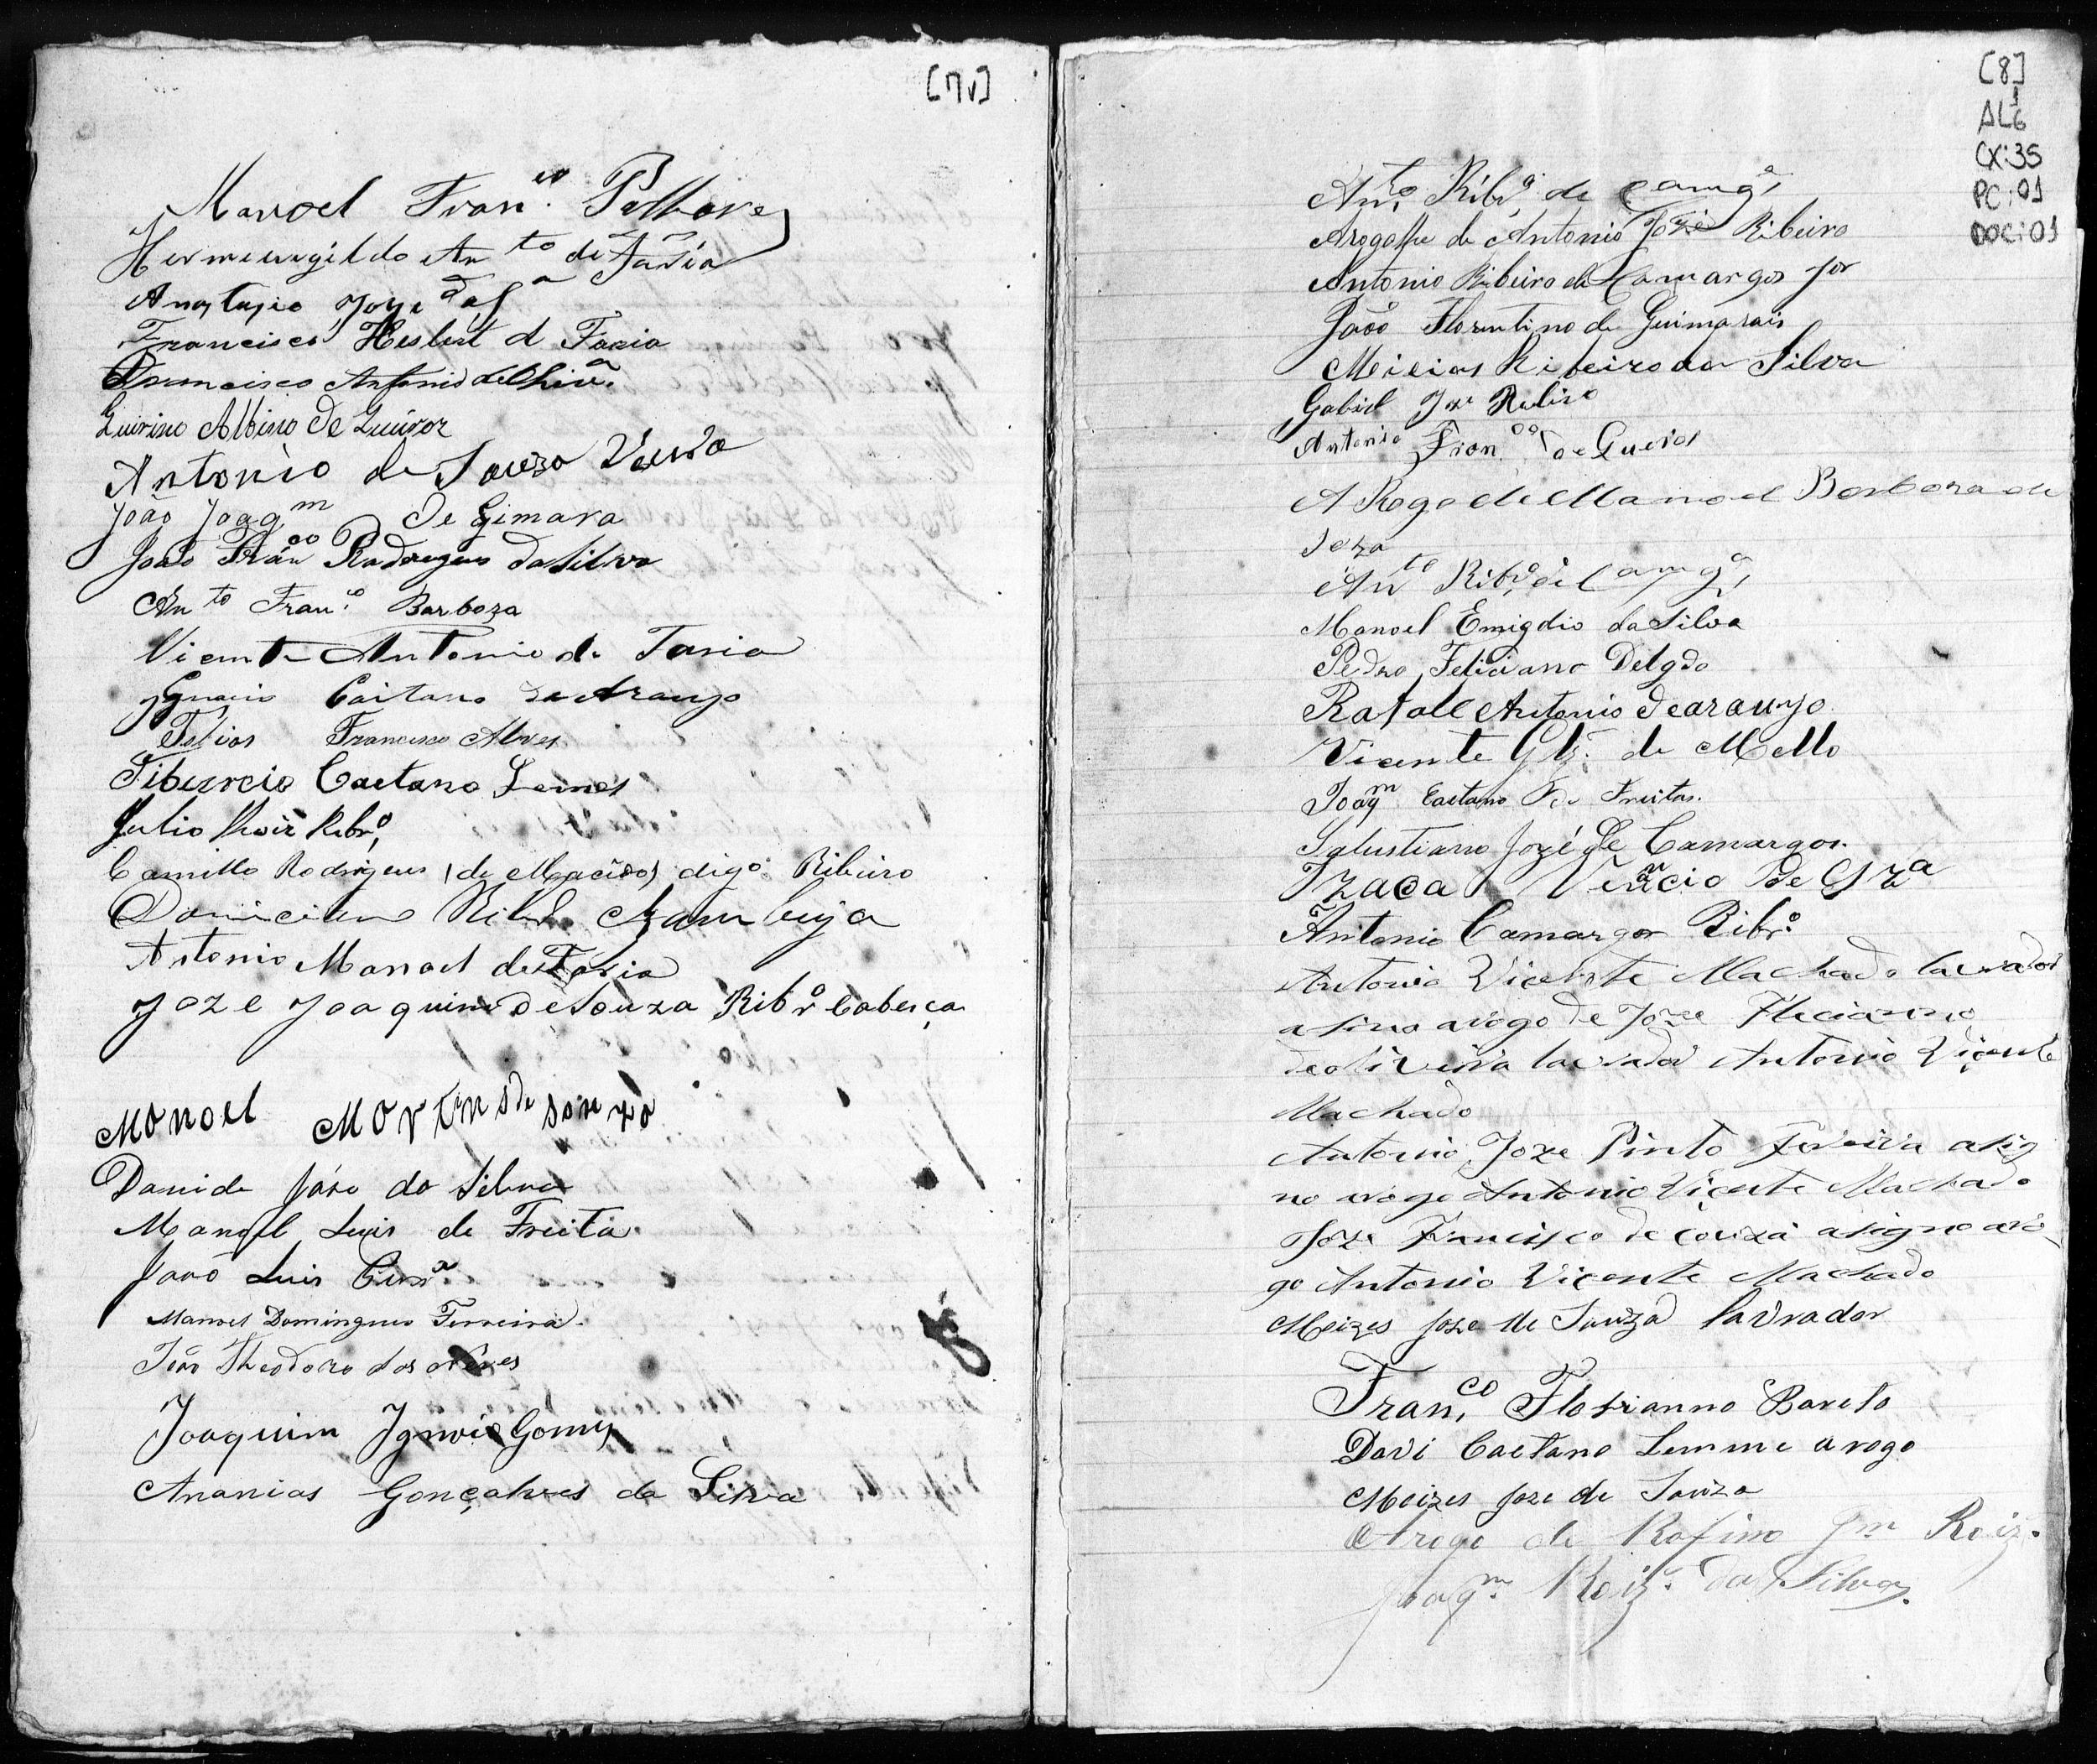 [7v]
Manoel Fran.co
Hermeregildo Anto de Faria
Anastasio Joze da Sa
Francisco Heslest d Faria
Francisco Antonio de Olivra
Quirino Albino de Queiroz
Antonio de Souza
João Joaqm de Gimara
João Franco Rodrigues da Silva
Anto Fran.co Barboza
Vicente Antonio de Faria
Ignacio Caitano de Araujo
Tobias Francisco Alves
Tibercio Caetano Lemes
Julio Roiz Ribro
Camillo Rodrigues (de Macedo) digo Ribeiro
Domiciano Ribro Azambuja
Antonio Manoel de Faria
Joze Joaquim de Souza Ribro Cabeça
Manoel Martins de Souza
David Jose da Silva
Manoel Luis de Freita
João Luis
Manoel Domingues Ferreira
João Theodoro das Neves
Joaquim Ignacio Gomes
Ananias Gonçalves da Silva
[8]
AL6
CX:35
PC:01
DOC:01
Anto Ribro de Camgos
Arogo de Antonio José Ribeiro
Antonio Ribeiro de Camargos Jor
João Florentino de Guimarais
Meicias Ribeiro da Silva
Gabiel Joze
Antonio Franco de
A Rogo de Manoel Barboza de
Soza
Anto Ribro de Camgos
Manoel Emigdio da Silva
Pedro Feliciano Delgdo
Rafall Antonio de araujo
Vicente Glz. de Mello
Joaqm Caetano de Freitas.
Salustiano Jozé de Camargos.
Izaca Venancio de Sza
Antonio Camargos Ribro.
Antonio Vicente Machado lavrador
asino arogo de Joze Flecianno
deoliveira lavrador Antonio Vicente
Machado
Antonio Joze Pinto Fereira asig
no arogo Antonio Vicente Machado
Joze Francisco de Couza asigno aro
go Antonio Vicente Machado
Moizes Joze de Souza lavrador
Fran.co Florianno Bareto
Davi Caetano Lemme arogo
Moizes Joze de Souza
Arogo de Rofino Jm Roiz.
Joaqm. Roiz. da Silva.